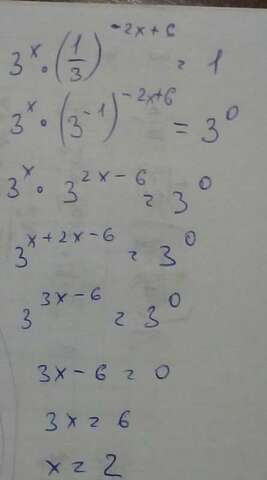 3^x · (1/3)^(-2x+6) = 1
3^x · (3^(-1))^(-2x+6) = 3^0
3^x · 3^(2x-6) = 3^0
3^(x+2x-6) = 3^0
3^(3x-6) = 3^0
3x - 6 = 0
3x = 6
x = 2